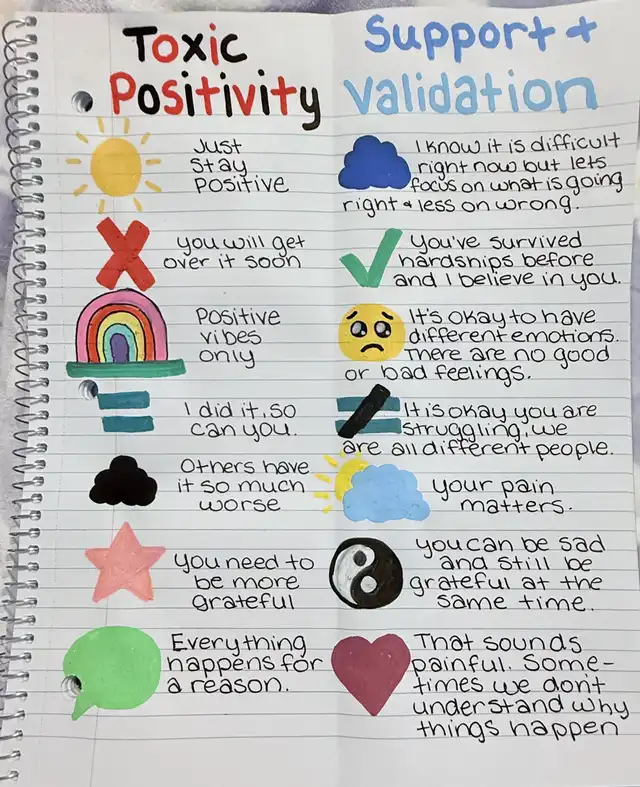 Toxic
Positivity
Support +
Validation
Just
stay
positive
I know it is difficult
right now but lets
focus on what is going
right + less on wrong.
you will get
over it soon
You've survived
hardships before
and I believe in you.
Positive
vibes
only
It's okay to have
different emotions.
There are no good
or bad feelings.
I did it, so
can you.
It is okay you are
struggling, we
are all different people.
Others have
it so much
worse
your pain
matters.
you need to
be more
grateful
you can be sad
and still be
grateful at the
same time.
Everything
happens for
a reason.
That sounds
painful. Some-
times we don't
understand why
things happen